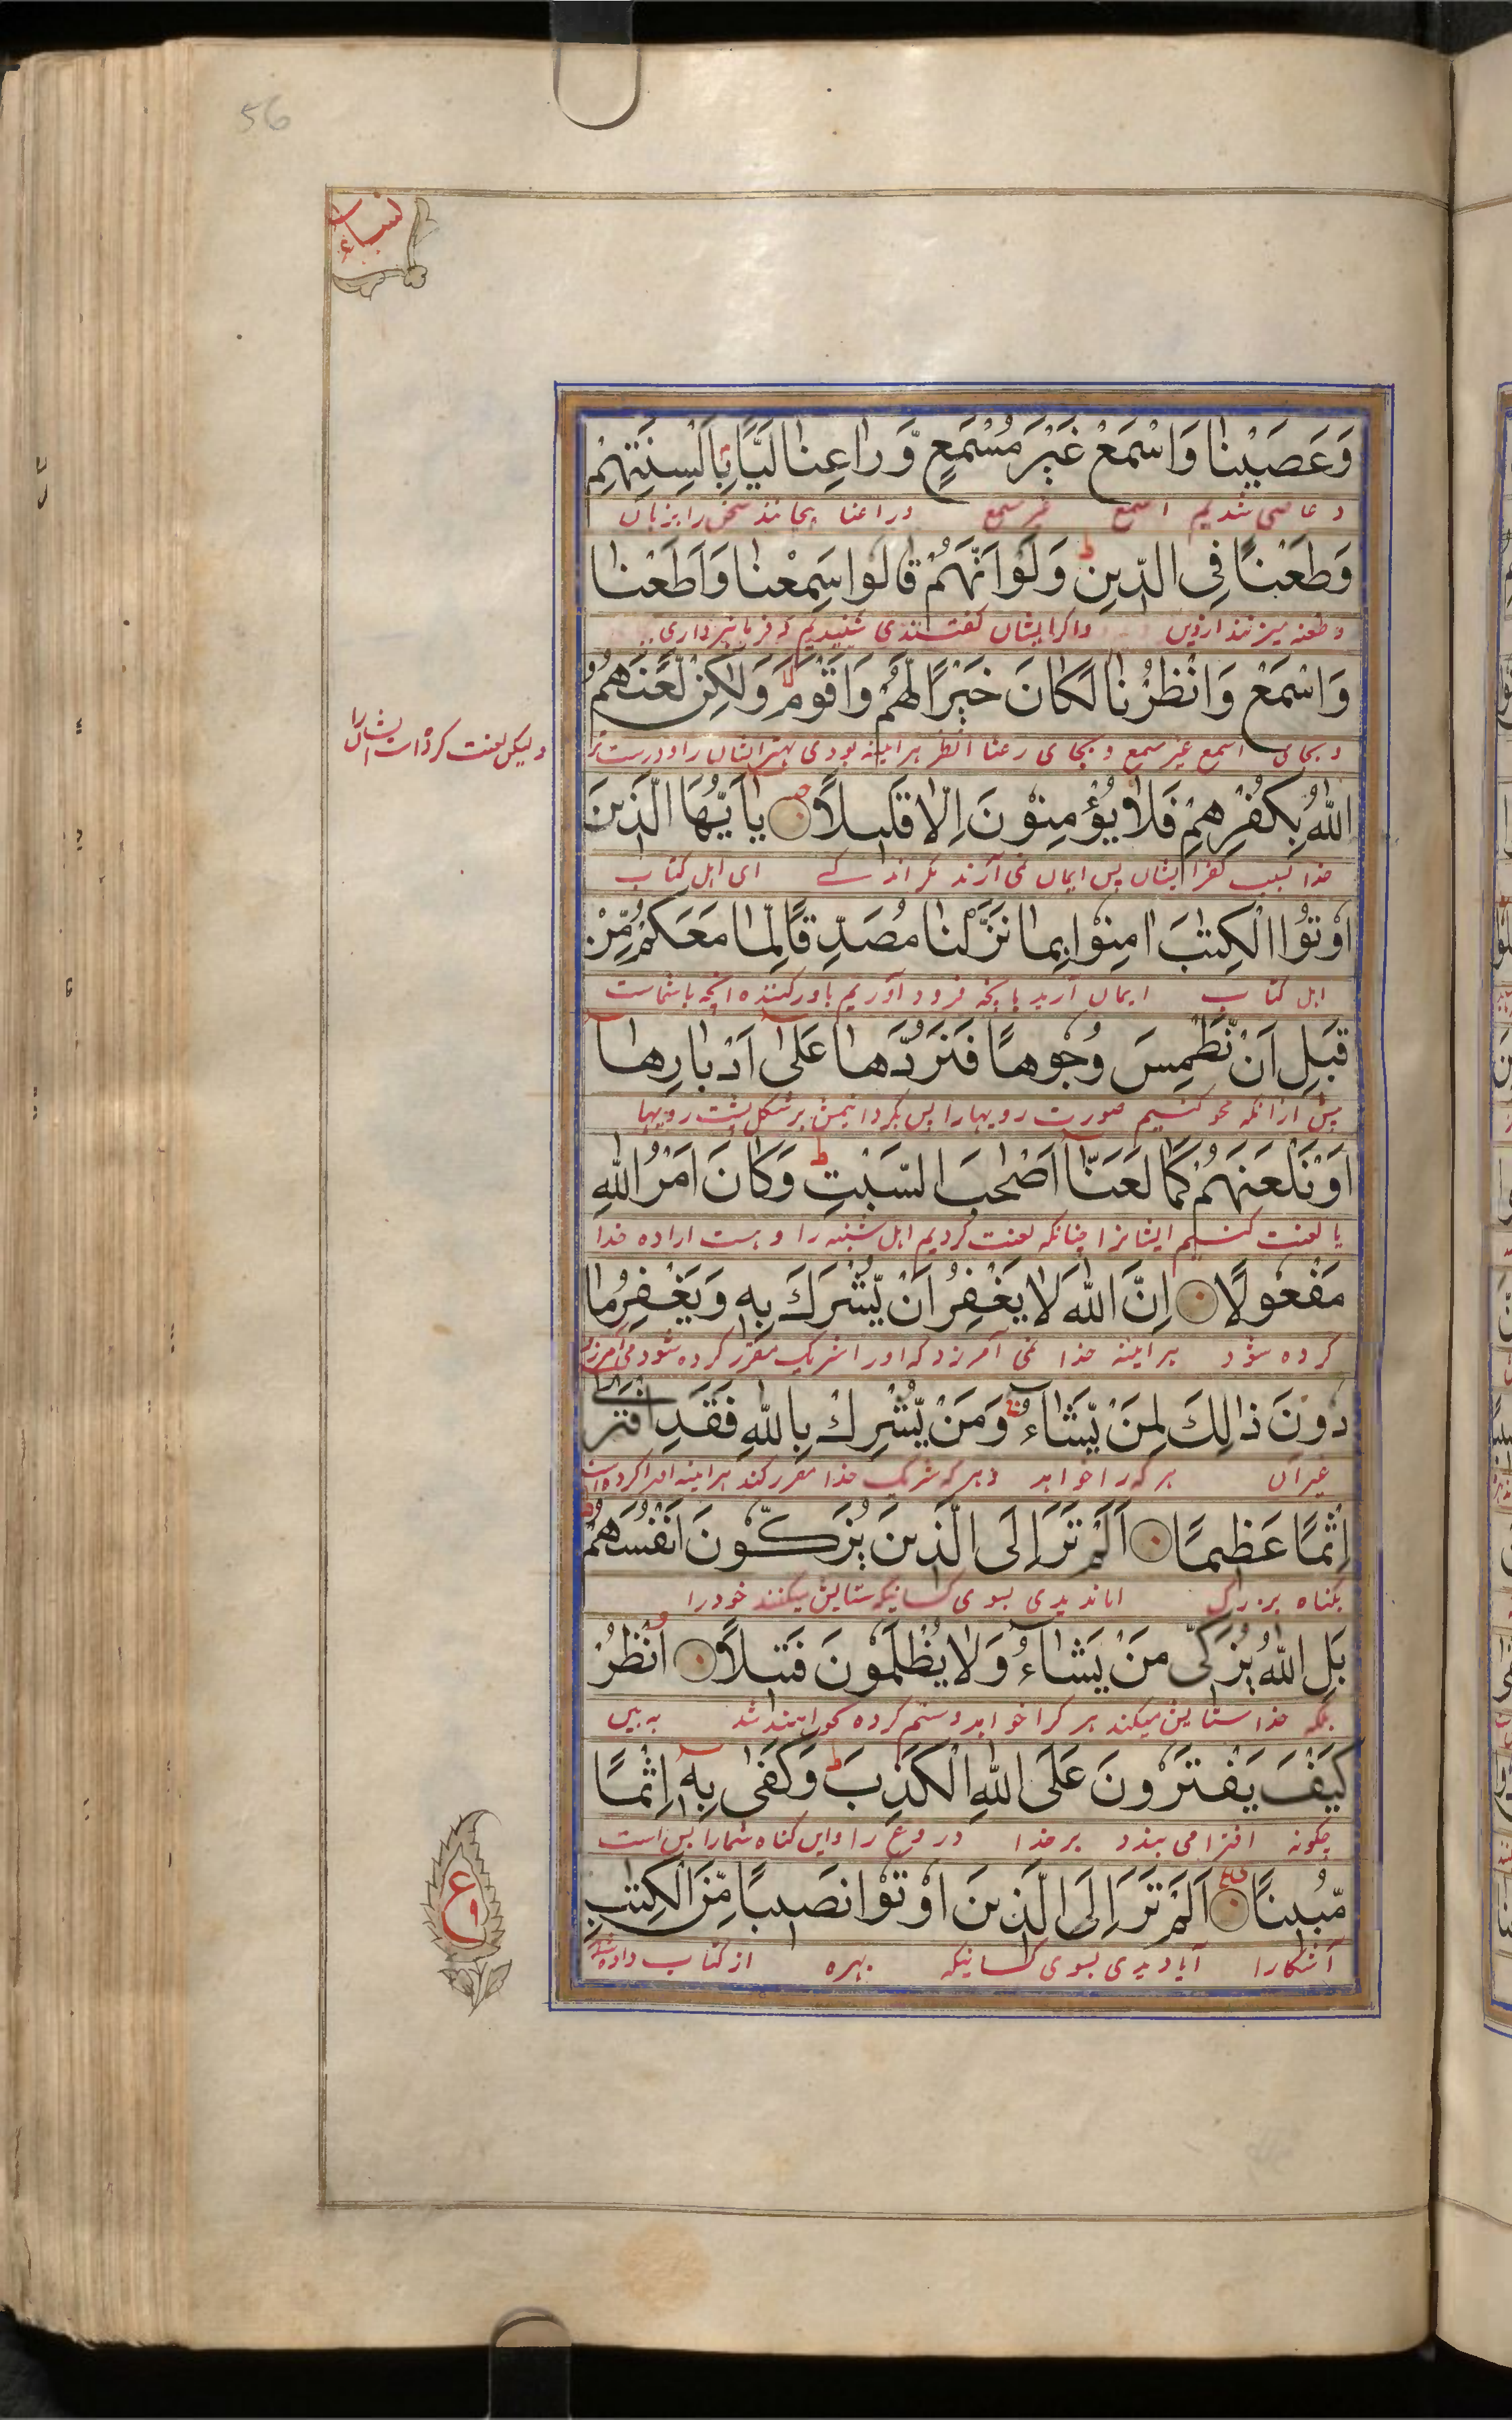 56
نساء
وَعَصَيْنَا وَاسْمَعْ غَيْرَ مُسْمَعٍ وَّرَاعِنَا لَيًّا بِاَلْسِنَتِهِمْ
و عاصی شدیم اسمع غیر مسمع و راعنا پیچانند سخن را بزبان
وَطَعْنًا فِي الدِّينِ ط وَلَوْ اَنَّهُمْ قَالُوا سَمِعْنَا وَاَطَعْنَا
و طعنه میزنند در دین و اگر ایشان گفتندی شنیدیم و فرمانبرداری
وَاسْمَعْ وَانْظُرْنَا لَكَانَ خَيْرًا لَّهُمْ وَاَقْوَمَ وَلٰكِنْ لَّعَنَهُمُ
و بجای اسمع غیر مسمع و بجای راعنا انظر هر آینه بودی بهتر ایشان را و درست تر
ولیکن لعنت کرده است ایشان را
اللّٰهُ بِكُفْرِهِمْ فَلَا يُؤْمِنُوْنَ اِلَّا قَلِيلًا يٰاَيُّهَا الَّذِينَ
خدا بسبب کفر ایشان پس ایمان نمی آرند مگر اندکے ای اهل کتاب
اُوْتُوا الْكِتٰبَ اٰمِنُوْا بِمَا نَزَّلْنَا مُصَدِّقًا لِّمَا مَعَكُمْ مِّنْ
اهل کتاب ایمان آرید بآنچه فرود آوردیم باور کننده آنچه باشماست
قَبْلِ اَنْ نَّطْمِسَ وُجُوهًا فَنَرُدَّهَا عَلٰى اَدْبَارِهَا
پیش ازانکه محو کنیم صورت رویها را پس بگردانیمش بر شکل پشت رویها
اَوْ نَلْعَنَهُمْ كَمَا لَعَنَّا اَصْحٰبَ السَّبْتِ ط وَكَانَ اَمْرُ اللّٰهِ
یا لعنت کنیم ایشانرا چنانکه لعنت کردیم اهل شنبه را و هست اراده خدا
مَفْعُولًا اِنَّ اللّٰهَ لَا يَغْفِرُ اَنْ يُّشْرَكَ بِهٖ وَيَغْفِرُ مَا
کرده شود هر آینه خدا نمی آمرزد که او را شریک مقرر کرده شود و می آمرزد
دُونَ ذٰلِكَ لِمَنْ يَّشَاءُ وَمَنْ يُّشْرِكْ بِاللّٰهِ فَقَدِ افْتَرٰى
غیر آن هر که را خواهد و هر که شریک خدا مقرر کند هر آینه افترا کرده است
اِثْمًا عَظِيمًا اَلَمْ تَرَ اِلَى الَّذِينَ يُزَكُّونَ اَنْفُسَهُمْ ط
بگناه بزرگ اما ندیدی بسوی کسانیکه ستایش میکنند خود را
بَلِ اللّٰهُ يُزَكِّى مَنْ يَشَاءُ وَلَا يُظْلَمُونَ فَتِيلًا اُنْظُرْ
بلکه خدا ستایش میکند هر کرا خواهد و ستم کرده نخواهند شد به بین
كَيْفَ يَفْتَرُونَ عَلَى اللّٰهِ الْكَذِبَ ط وَكَفٰى بِهٖ اِثْمًا
چگونه افترا می بندد بر خدا دروغ را و این گناه شما را بس است
مُّبِينًا اَلَمْ تَرَ اِلَى الَّذِينَ اُوْتُوْا نَصِيبًا مِّنَ الْكِتٰبِ
آشکارا آیا ندیدی بسوی کسانیکه بهره از کتاب داده شد
ع